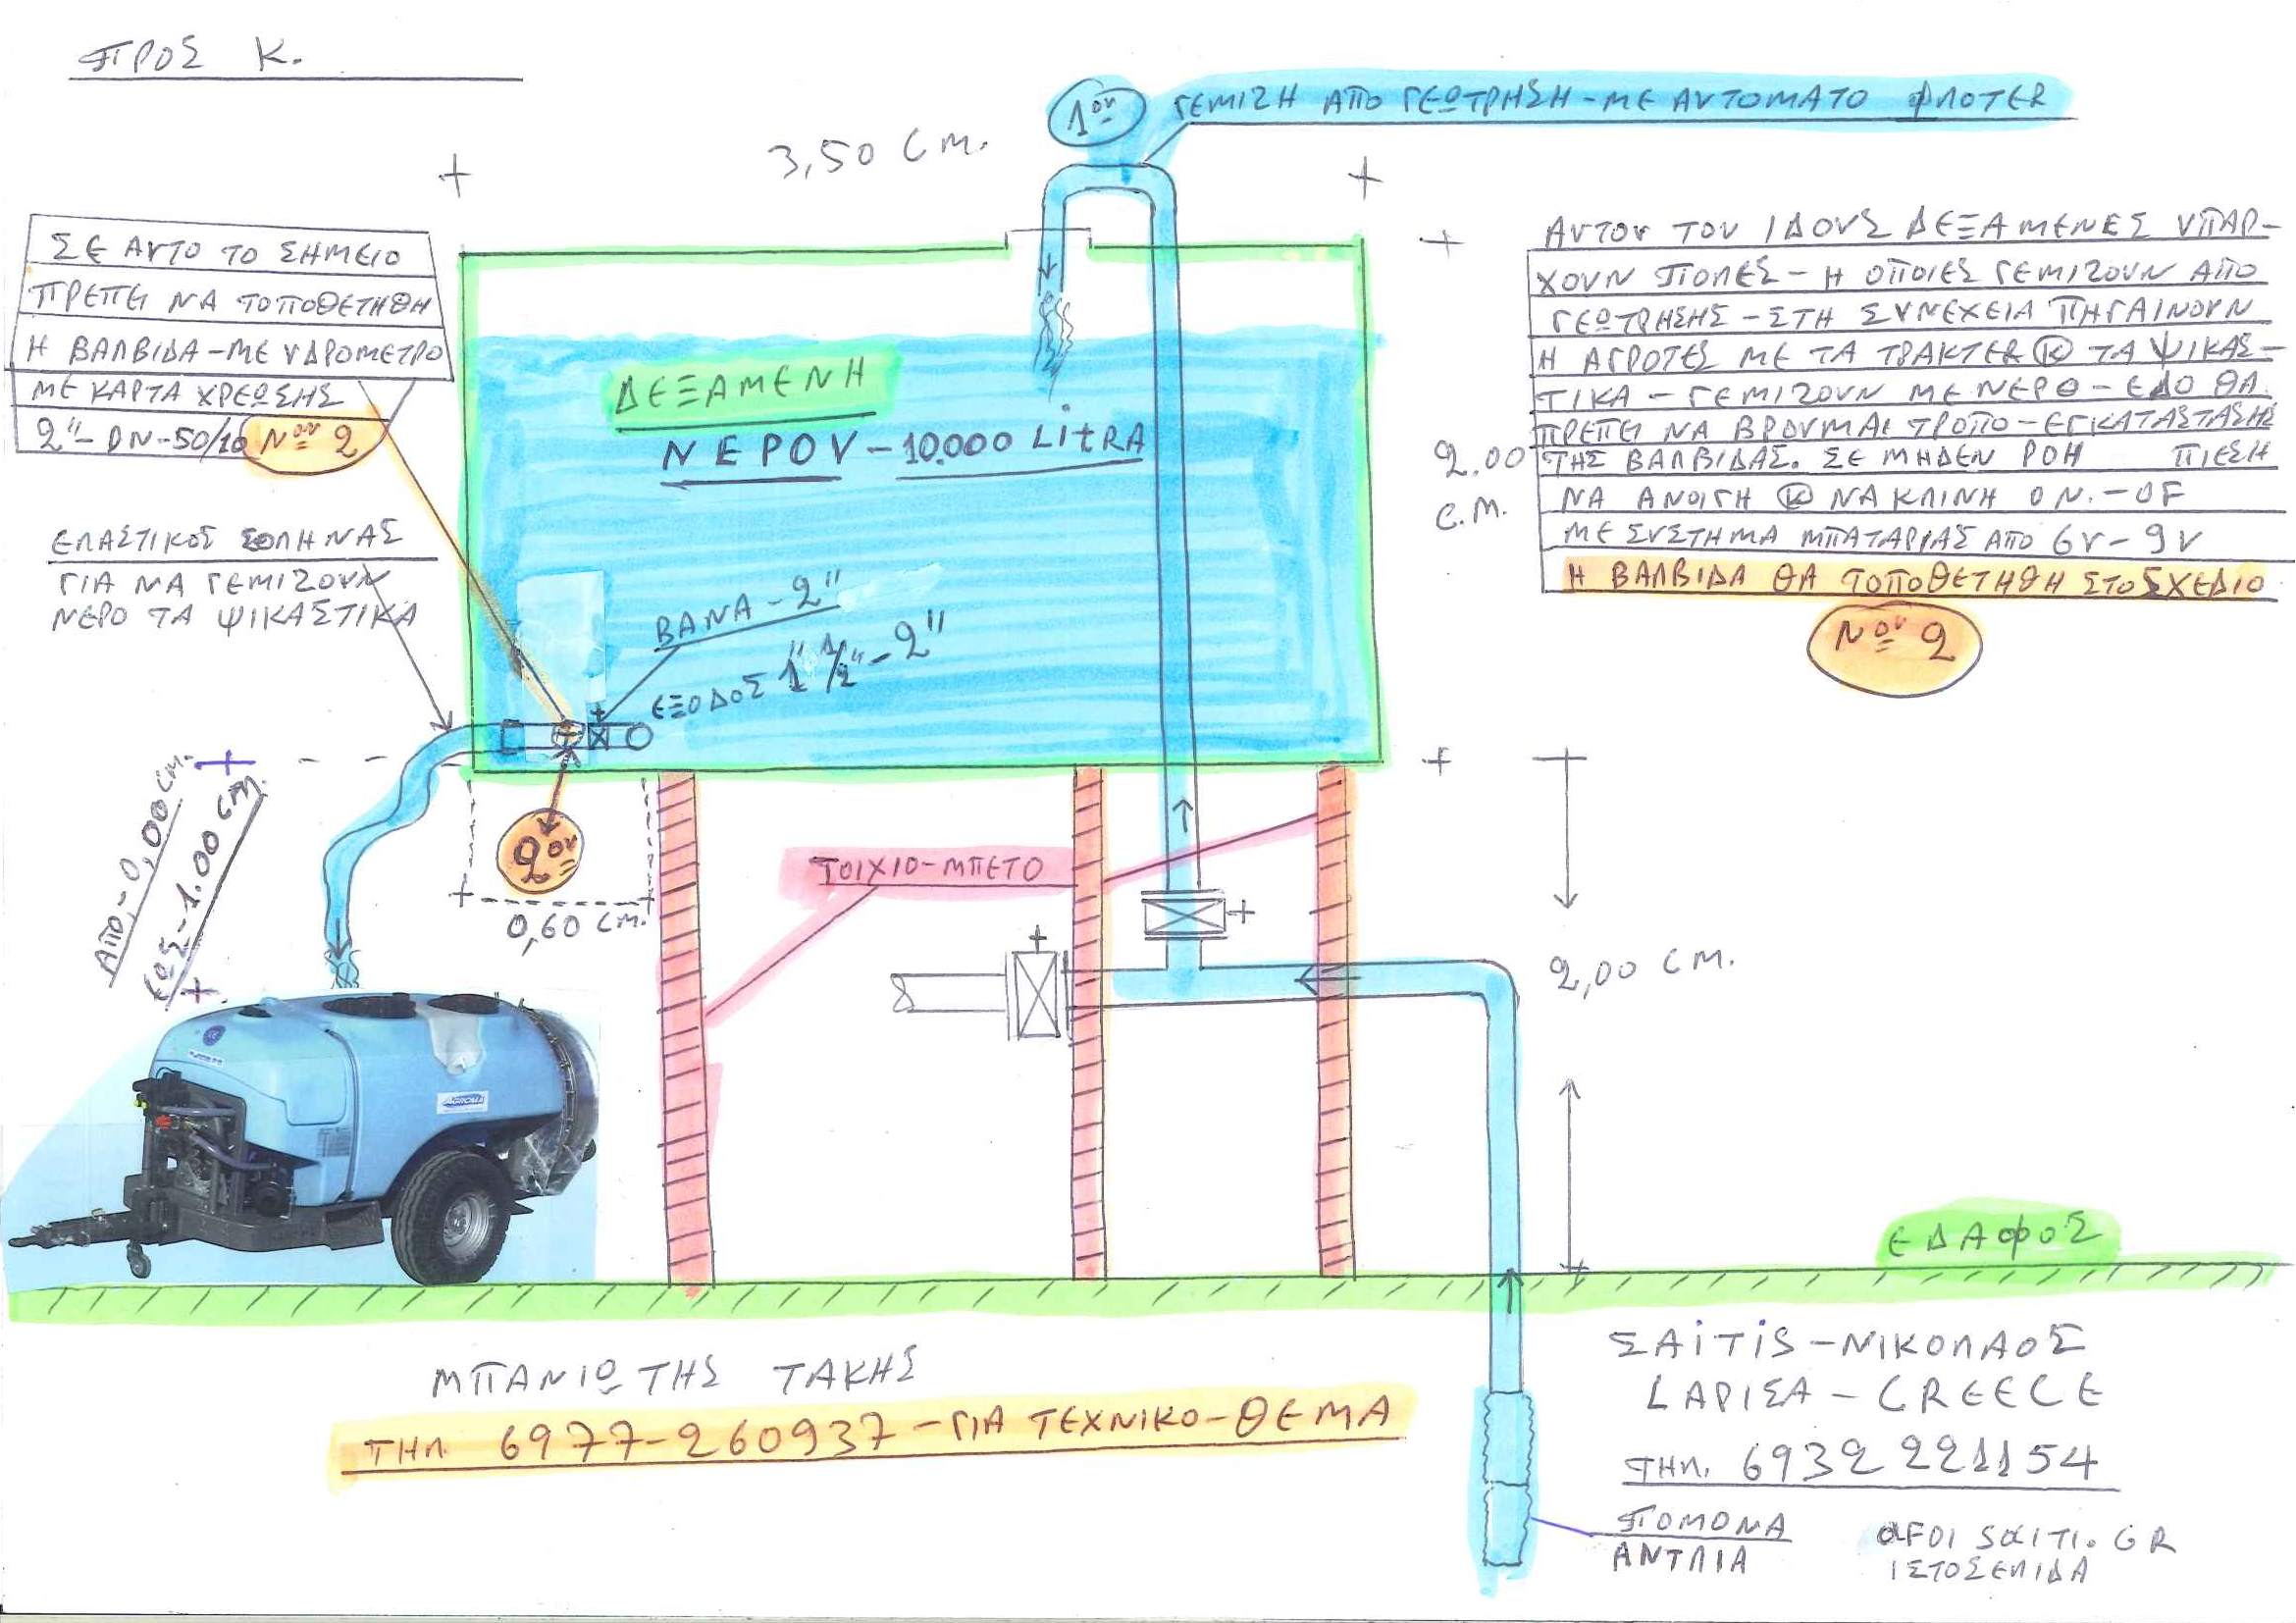 ΠΡΟΣ Κ.
1ον ΓΕΜΙΖΗ ΑΠΟ ΓΕΩΤΡΗΣΗ-ΜΕ ΑΥΤΟΜΑΤΟ ΦΛΟΤΕR
3,50 CM.
ΣΕ ΑΥΤΟ ΤΟ ΣΗΜΕΙΟ
ΠΡΕΠΕΙ ΝΑ ΤΟΠΟΘΕΤΗΘΗ
Η ΒΑΛΒΙΔΑ-ΜΕ ΥΔΡΟΜΕΤΡΟ
ΜΕ ΚΑΡΤΑ ΧΡΕΩΣΗΣ
2"-DN-50/10 Νον 2
ΑΥΤΟΥ ΤΟΥ ΙΔΟΥΣ ΔΕΞΑΜΕΝΕΣ ΥΠΑΡ-
ΧΟΥΝ ΠΟΛΕΣ-Η ΟΠΟΙΕΣ ΓΕΜΙΖΟΥΝ ΑΠΟ
ΓΕΩΤΡΗΣΗΣ-ΣΤΗ ΣΥΝΕΧΕΙΑ ΠΗΓΑΙΝΟΥΝ
Η ΑΓΡΟΤΕΣ ΜΕ ΤΑ ΤΡΑΚΤΕR Κ ΤΑ ΨΙΚΑΣ-
ΤΙΚΑ-ΓΕΜΙΖΟΥΝ ΜΕ ΝΕΡΟ-ΕΔΟ ΘΑ
ΠΡΕΠΕΙ ΝΑ ΒΡΟΥΜΑΙ ΤΡΟΠΟ-ΕΓΚΑΤΑΣΤΑΣΗΣ
ΤΗΣ ΒΑΛΒΙΔΑΣ. ΣΕ ΜΗΔΕΝ ΡΟΗ ΠΙΕΣΗ
ΝΑ ΑΝΟΙΓΗ Κ ΝΑ ΚΛΙΝΗ ΟΝ.-OF
ΜΕ ΣΥΣΤΗΜΑ ΜΠΑΤΑΡΙΑΣ ΑΠΟ 6V-9V
Η ΒΑΛΒΙΔΑ ΘΑ ΤΟΠΟΘΕΤΗΘΗ ΣΤΟ ΣΧΕΔΙΟ
Νον 2
2.00
C.M.
ΔΕΞΑΜΕΝΗ
ΝΕΡΟΥ-10.000 LitRA
ΕΛΑΣΤΙΚΟΣ ΣΟΛΗΝΑΣ
ΓΙΑ ΝΑ ΓΕΜΙΖΟΥΝ
ΝΕΡΟ ΤΑ ΨΙΚΑΣΤΙΚΑ
ΒΑΝΑ-2"
ΕΞΟΔΟΣ 1" 1/2"-2"
ΑΠΟ-0,00 CM.
ΕΩΣ-1.00 CM.
2ον
0,60 CM.
ΤΟΙΧΙΟ-ΜΠΕΤΟ
2,00 CM.
AGROMA
ΕΔΑΦΟΣ
ΜΠΑΝΙΩΤΗΣ ΤΑΚΗΣ
ΤΗΛ. 6977-260937-ΓΙΑ ΤΕΧΝΙΚΟ-ΘΕΜΑ
ΣΑiTiS-ΝΙΚΟΛΑΟΣ
LΑΡΙΣΑ-GREECE
ΤΗΛ. 6932 221154
ΠΟΜΟΝΑ
ΑΝΤΛΙΑ
αFOI SαITI.GR
ΙΣΤΟΣΕΛΙΔΑ